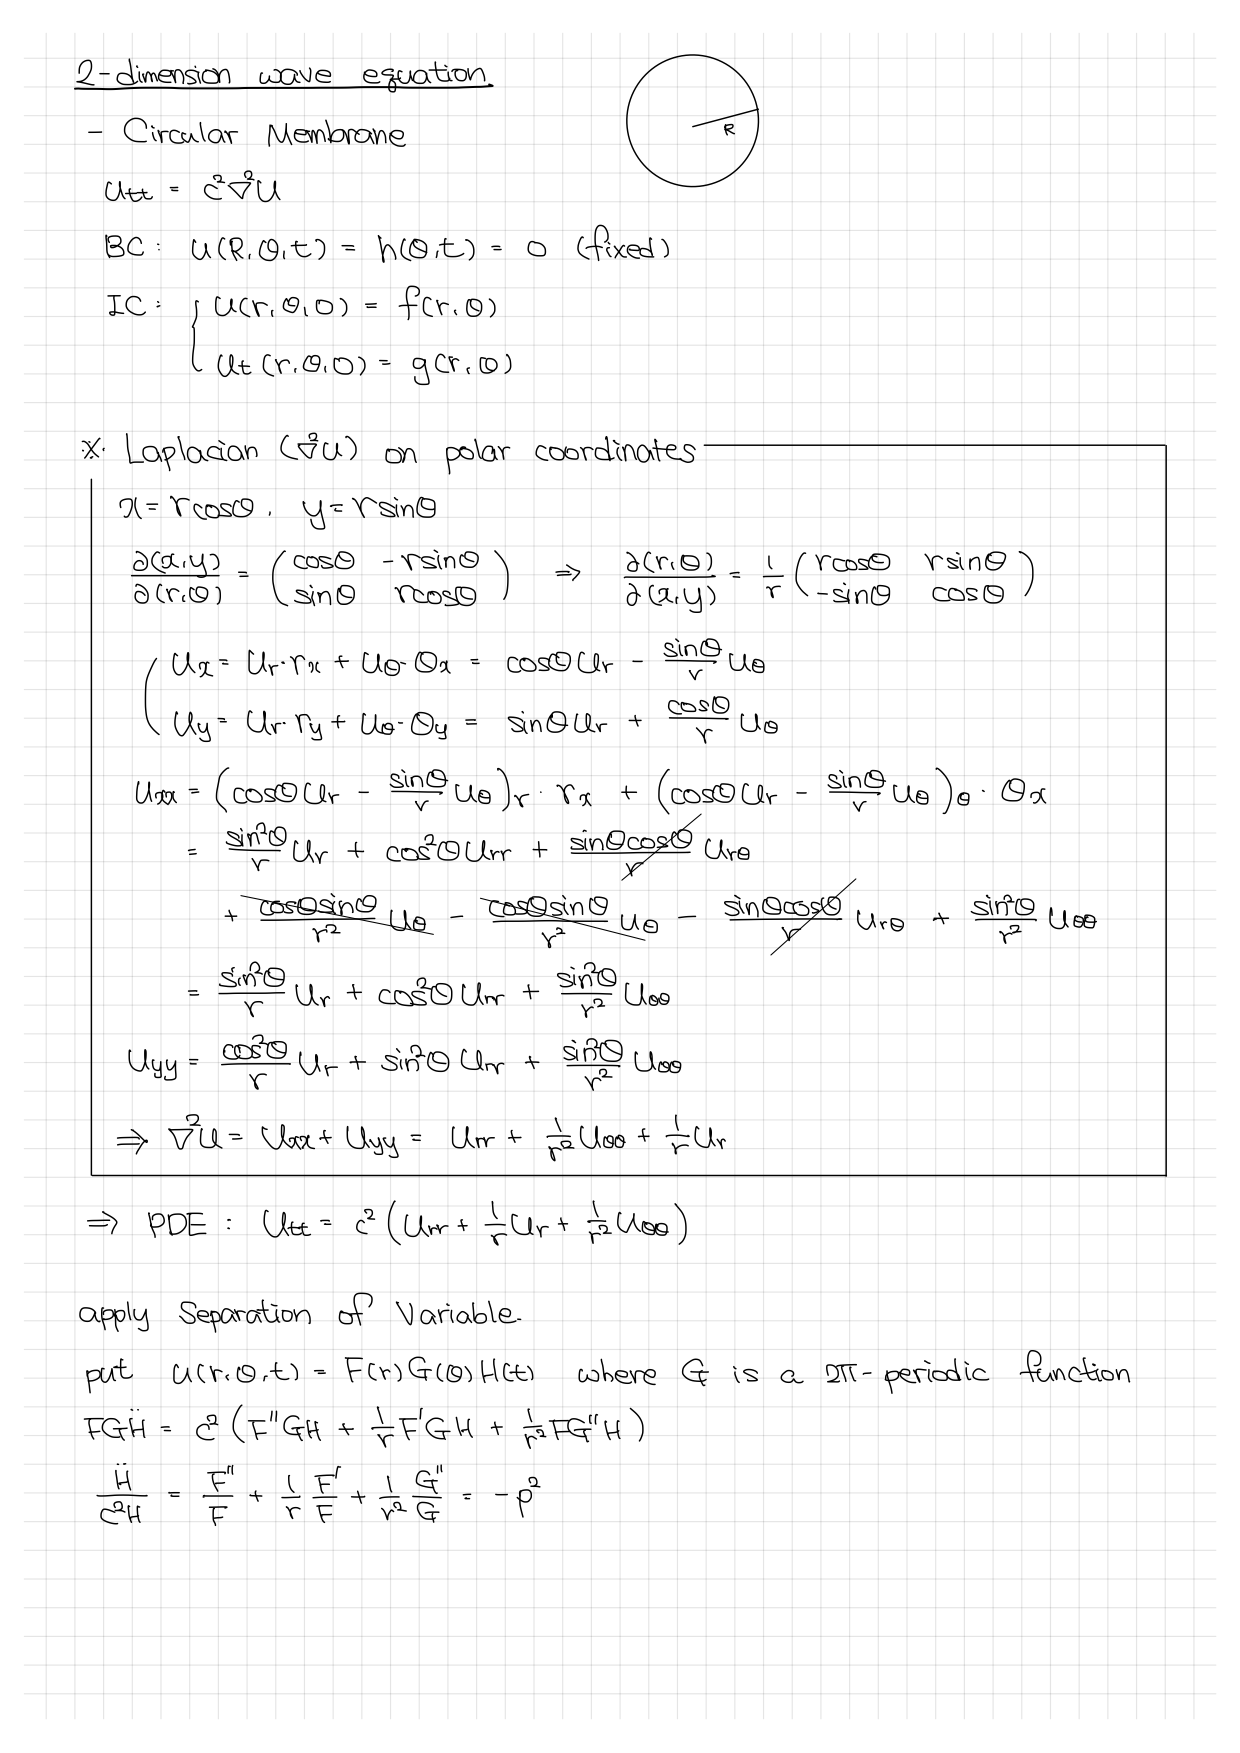 2-dimension wave equation.
R
- Circular Membrane
u_tt = c²∇²u
BC : u(R,θ,t) = h(θ,t) = 0 (fixed)
IC : { u(r,θ,0) = f(r,θ)
u_t(r,θ,0) = g(r,θ)
※. Laplacian (∇²u) on polar coordinates
x = rcosθ, y = rsinθ
∂(x,y)/∂(r,θ) = (cosθ -rsinθ / sinθ rcosθ) ⇒ ∂(r,θ)/∂(x,y) = 1/r (rcosθ rsinθ / -sinθ cosθ)
u_x = u_r·r_x + u_θ·θ_x = cosθ u_r - sinθ/r u_θ
u_y = u_r·r_y + u_θ·θ_y = sinθ u_r + cosθ/r u_θ
u_xx = (cosθ u_r - sinθ/r u_θ)_r · r_x + (cosθ u_r - sinθ/r u_θ)_θ · θ_x
= sin²θ/r u_r + cos²θ u_rr + sinθcosθ/r u_rθ
+ cosθsinθ/r² u_θ - cosθsinθ/r² u_θ - sinθcosθ/r u_rθ + sin²θ/r² u_θθ
= sin²θ/r u_r + cos²θ u_rr + sin²θ/r² u_θθ
u_yy = cos²θ/r u_r + sin²θ u_rr + sin²θ/r² u_θθ
⇒ ∇²u = u_xx + u_yy = u_rr + 1/r² u_θθ + 1/r u_r
⇒ PDE : u_tt = c² (u_rr + 1/r u_r + 1/r² u_θθ)
apply Separation of Variable.
put u(r,θ,t) = F(r)G(θ)H(t) where G is a 2π-periodic function
FGḦ = c² (F''GH + 1/r F'GH + 1/r² FG''H)
Ḧ/c²H = F''/F + 1/r F'/F + 1/r² G''/G = -p²